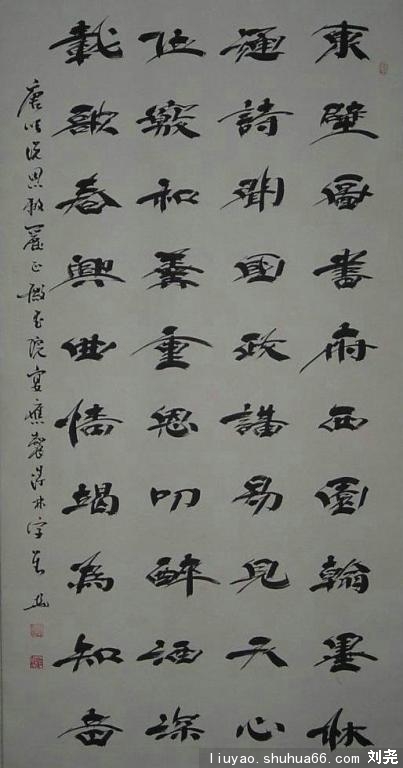 東壁圖書府西園翰墨林
誦詩聞國政講易見天心
位竊和羹重恩叨醉酒深
載歌春興曲情竭為知音
唐張說恩敕麗正殿書院宴應製得林字
liuyao.shuhua66.com 刘尧